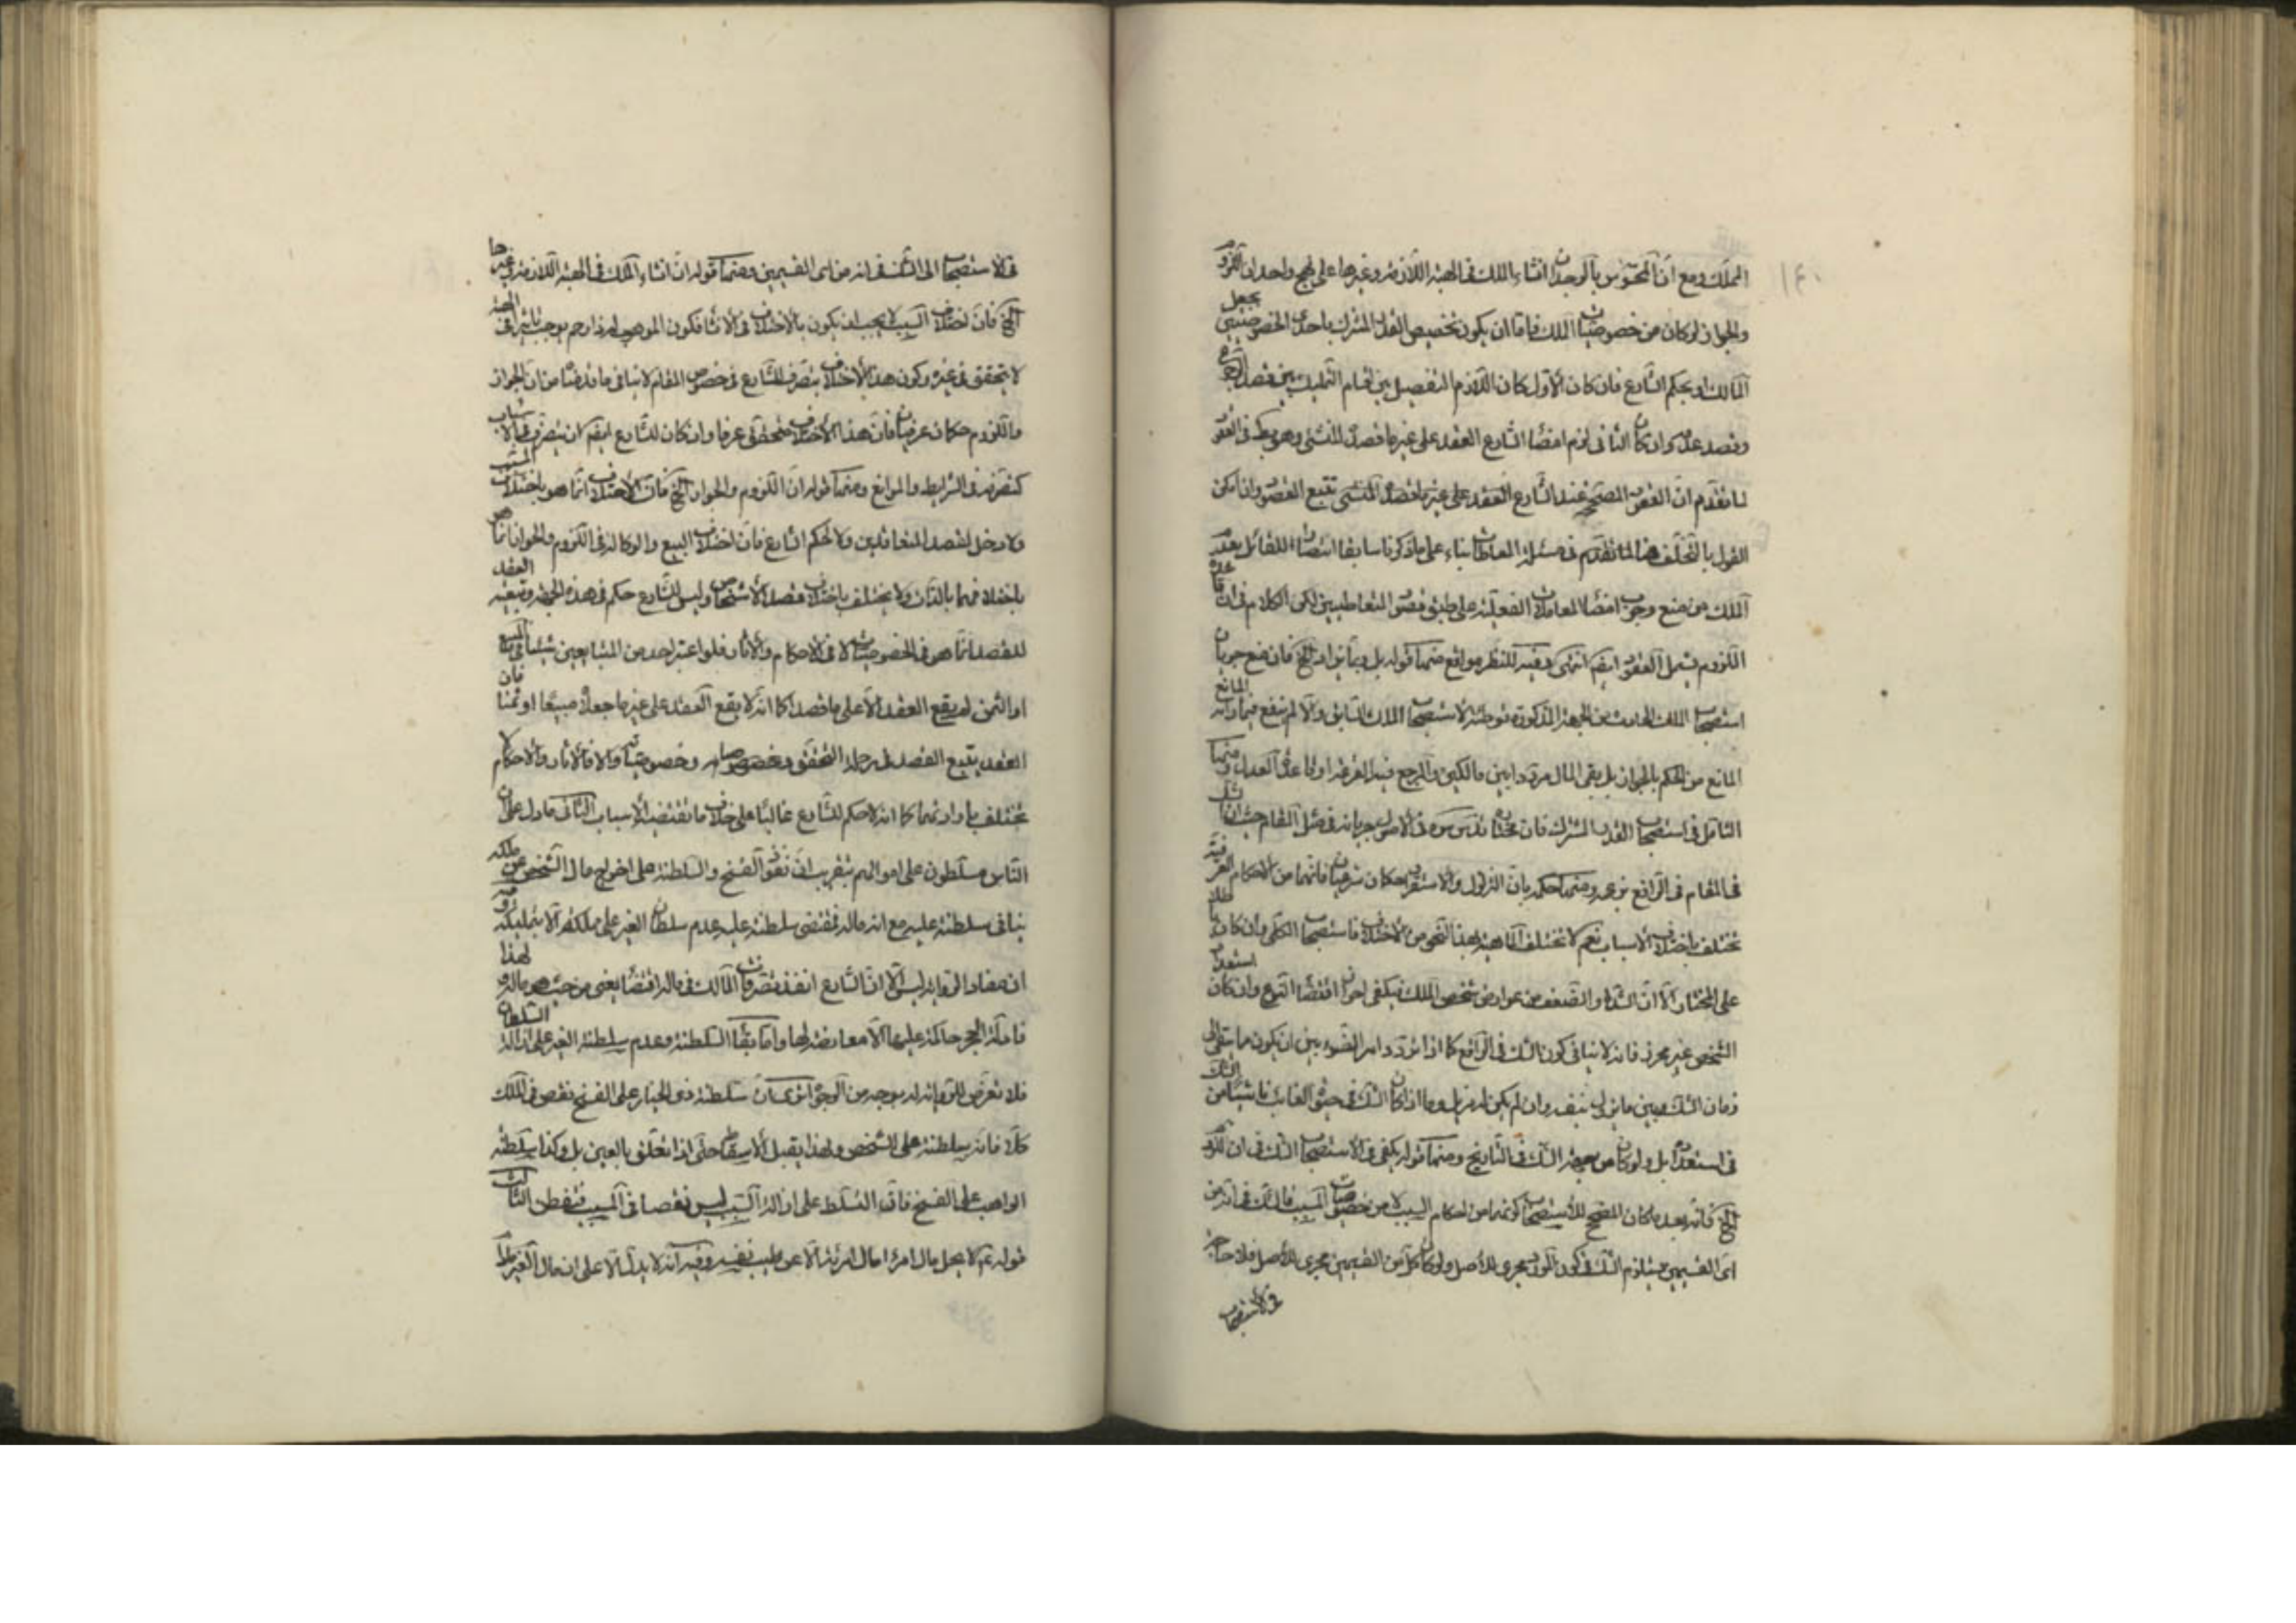 المملك ومع انّ المحسوس بالوجدان انشاء الملك فى الهبة اللازمة وغيرها على نهج واحد ان اللزوم
والجواز لو كان من خصوصيات الملك فامّا ان يكون تخصيص القدر المشترك باحدى الخصوصيتين بجعل
المالك او بحكم الشارع فان كان الأوّل كان اللازم التفصيل بين اقسام التمليك بين قصد الرجوع
وقصد عدمه وان كان الثانى لزم امضاء الشارع العقد على غير ما قصده المنشئ وهو بط فى العقود
لما تقدّم انّ العقود المصححة عند الشارع العقد على غير ما قصده المنشئ تتبع القصود وان امكن
القول بالتخلّف هنا لما تقدّم فى مسئلة المعاطات بناء على ما ذكرنا سابقا انتصارا للقائل بعدم
الملك من منع وجوب امضاء المعاملات الفعلية على طبق قصود المتعاطيين لكن الكلام فى ان قاعدة
اللزوم يشمل العقود ايضا انتهى وفيه للنظر مواقع منها قوله بل ربما يزاد الخ فان منع جريان
استصحاب الملك الحادث من الجهة المذكورة توطئة لاستصحاب الملك السابق والّا لم ينفع فيما رامه المانع
المانع من الحكم بالجواز بل يبقى المال مرددا بين مالكين والمرجع فيه القرعة او قاعدة العدل ومنها
التامل فى استصحاب القدر المشترك فان مختاره قدس سره فى الأصول جريانه فى مثل المقام حيث ان الشك
فى المقام فى الرافع نوعه ومنها حكمه بان التزلزل والاستقرار حكمان شرعيان فانّهما من الاحكام العرفية
تختلف باختلاف الأسباب نعم لا تختلف الماهية بهذا النحو من الاختلاف فاستصحاب الكلّى وان كان
على المختار الّا ان الشدة والضعف من عوارض شخص الملك فيكفى احراز اقتضاء النوع وان كان استعداد
الشخص غير محرز فانه لا ينافى كون الشك فى الرافع كما اذا تردد امر الضوء بين ان يكون مما يبقى الى
زمان الشك وبين ما يزول بنفسه وان لم يكن له مزيل وما اذا كان الشك فى حيوة الغائب ناشئا من الشك
فى استعداده بل ولو كان من جهة الشك فى التاريخ ومنها قوله يكفى فى الاستصحاب الشك فى ان اللزوم
الخ فانّه بعد ما كان المصحح للاستصحاب كونهما من احكام السبب لا من خصوصيات المسبب فالشك فى انه من
اىّ القسمين يستلزم الشك فى كون المورد مجرى للأصل ولو كان كل من القسمين مجرى للأصل فلا حاجة
فى الاستصحاب
فى الاستصحاب الى الشك فى انه من اى القسمين ومنها قوله ان انشاء الملك فى الهبة اللازمة وغيرها
الخ فان اختلاف السبب لا يجب ان يكون بالاختلاف فى الانشاء فكون الموهوب له ذا رحم يوجب تاثيرا فى الهبة
لا يتحقق فى غيره وكون هذا الأختلاف بتصرف الشارع فى خصوص المقام لا ينافى ما قدمنا من ان الجواز
واللزوم حكمان عرفيان فانّ هذا الأختلاف متحقق عرفا وان كان للشارع ايضا ان يتصرف فى الأسباب
كتصرّفه فى الشرايط والموانع ومنها قوله انّ اللزوم والجواز الخ فان الاختلاف انّما هو باختلاف المسبب
ولا دخل لقصد المتعاقدين ولا لحكم الشارع فان اختلاف البيع والوكالة فى اللزوم والجواز انما
باختلافهما بالذات ولا يختلف باختلاف قصد الأشخاص وليس للشارع حكم فى هذه الجهة وتبعية العقد
للقصد انّما هو فى الخصوصيات لا فى الاحكام والأثار فلو اعتبر احد من المتبايعين شيئا فى المبيع
او الثمن لم يقع العقد الا على ما قصد كما انه لا يقع العقد على غير ما جعل مبيعا او ثمنا فان
العقد يتبع القصد فى مرحلة التحقق وخصوصياته والا فالأثار والاحكام لا
تختلف بارادتهما كما انه لا حكم للشارع غالبا على خلاف ما تقتضيه الأسباب الثانى ما دل على ان
الناس مسلّطون على اموالهم بتقريب انّ نفوذ الفسخ والسلطنة على اخراج مال الشخص عن ملكه
ينافى سلطنته عليه مع انه ماله فمقتضى سلطنته عليه عدم سلطان الغير على تملكه الا بتمليكه وفيه
ان مفاد الرواية ليس الّا انّ الشارع انفذ تصرفات المالك فى ماله اقتضاء يعنى من حيث هو ماله ولهذا
فادلة الحجر حاكمة عليها لا معارضة لها وامّا بقاء السلطنة وعدم سلطنة الغير على ازالة السلطان
فلا تعرّض للرواية له بوجه من الوجوه اترى ان سلطنة ذى الخيار على الفسخ نقص فى الملك
كلّا فانه سلطنة على الشخص ولهذا يقبل الأسقاط حتّى اذا تعلّق بالعين بل وكذا سلطنة
الواهب على الفسخ فانّ التسلط على ازالة السبب ليس نقصا فى المسبب فتفطن الثالث
قوله ع لا يحل مال امرء الا عن طيب نفسه وفيه انّه لا يدل الّا على ان مال الغير